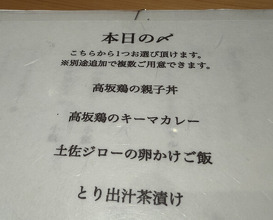 本日の〆
こちらから1つお選び頂けます。
※別途追加で複数ご用意できます。
高坂鶏の親子丼
高坂鶏のキーマカレー
土佐ジローの卵かけご飯
とり出汁茶漬け